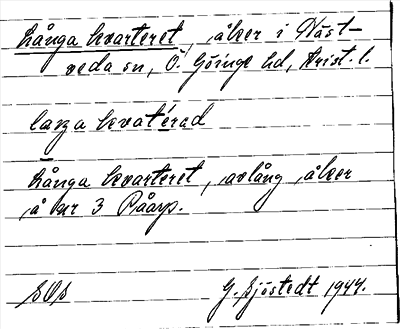 Långa kvarteret, åker iVäst-
veda sn, Ö. Göinge hd, Krist. l.
laŋa kvatérad
Långa kvarteret, avlång åker
å nr 3 Råarp.
SOS G. Sjöstedt 1944.